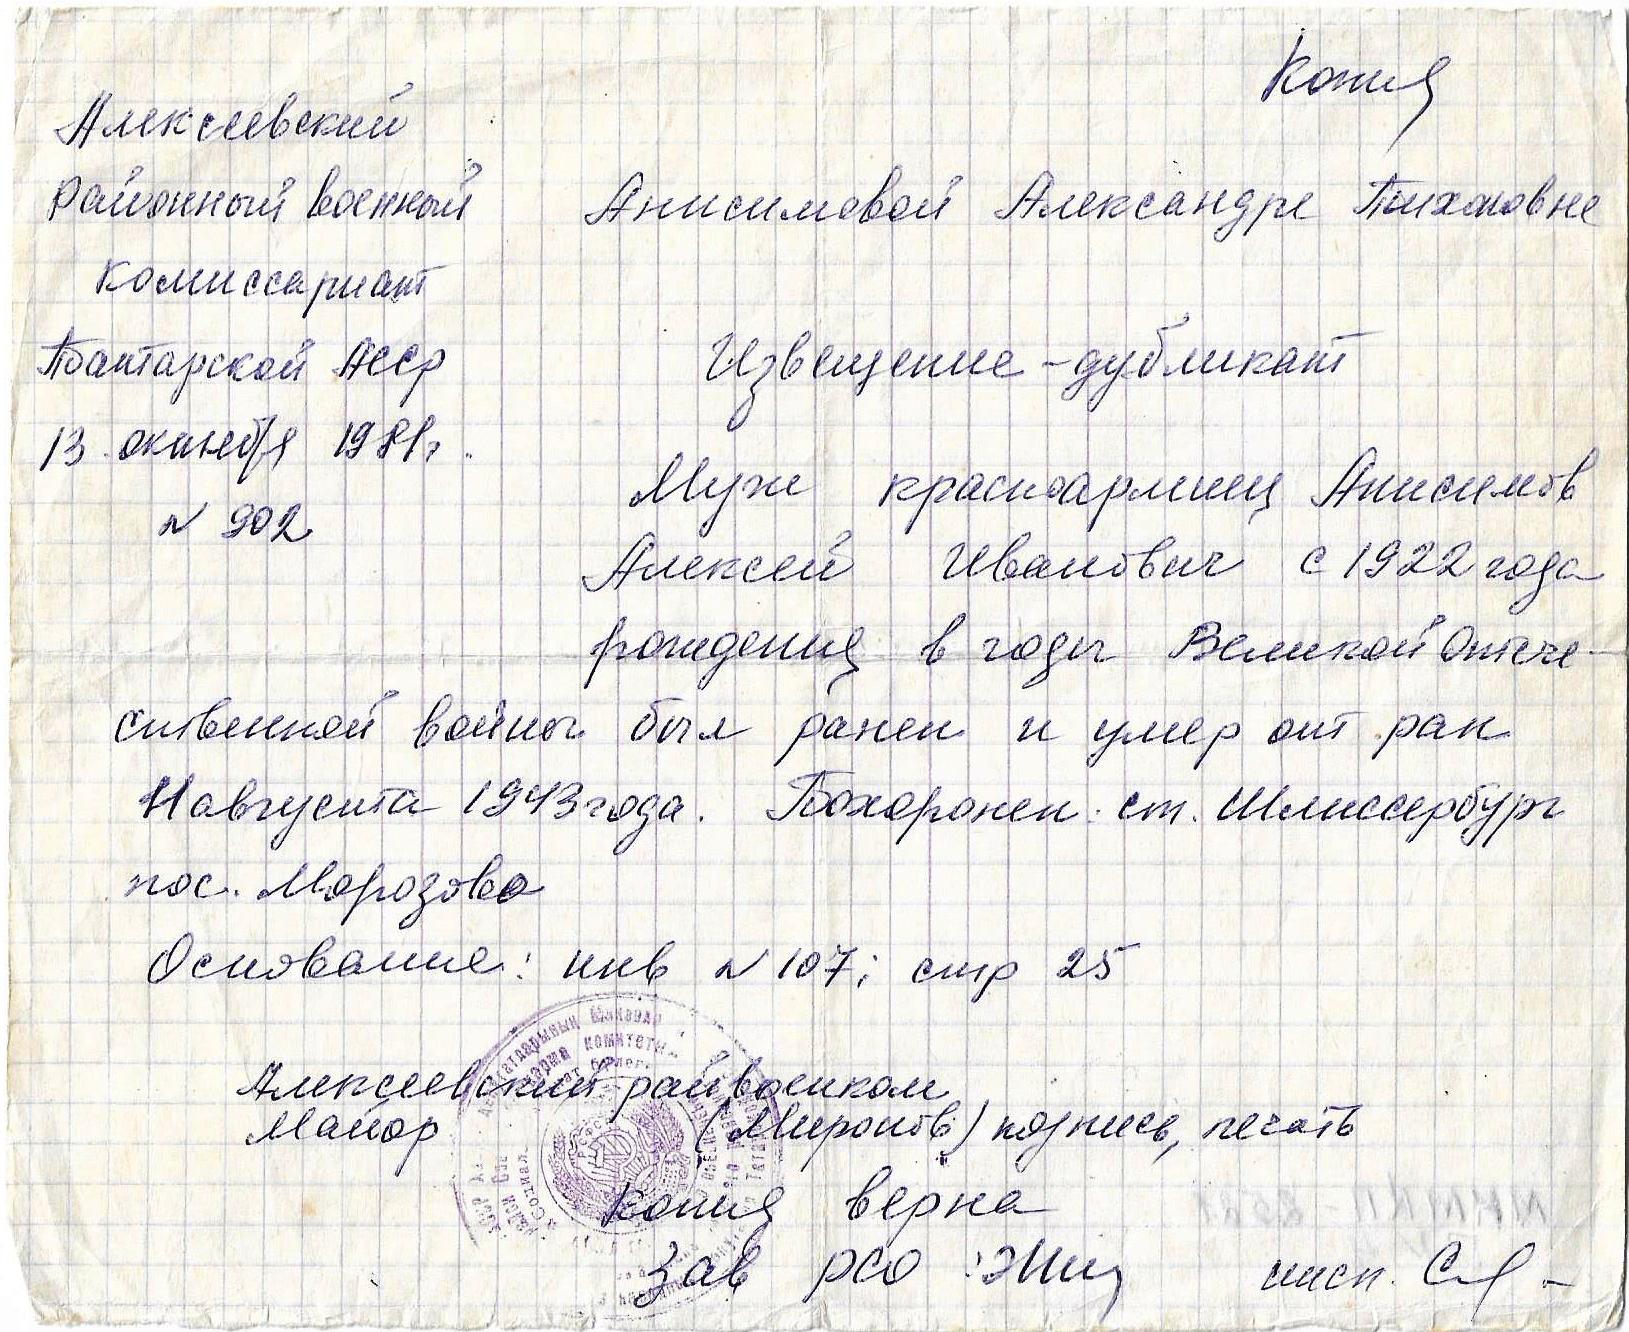 Копия
Алексеевский
районный военный
комиссариат
Татарской АССР
13 октября 1981г.
N 902
Анисимовой Александре Тихоновне
Извещение-дубликат
Муж красноармеец Анисимов
Алексей Иванович с 1922 года
рождения в годы Великой Отече-
ственной войны был ранен и умер от ран
11 августа 1943 года. Похоронен ст. Шлиссербург
пос. Морозово
Основание: инв N 107; стр 25
Алексеевский райвоенком
Майор (Миронов) подпись, печать
копия верна
Зав РСО
инсп.